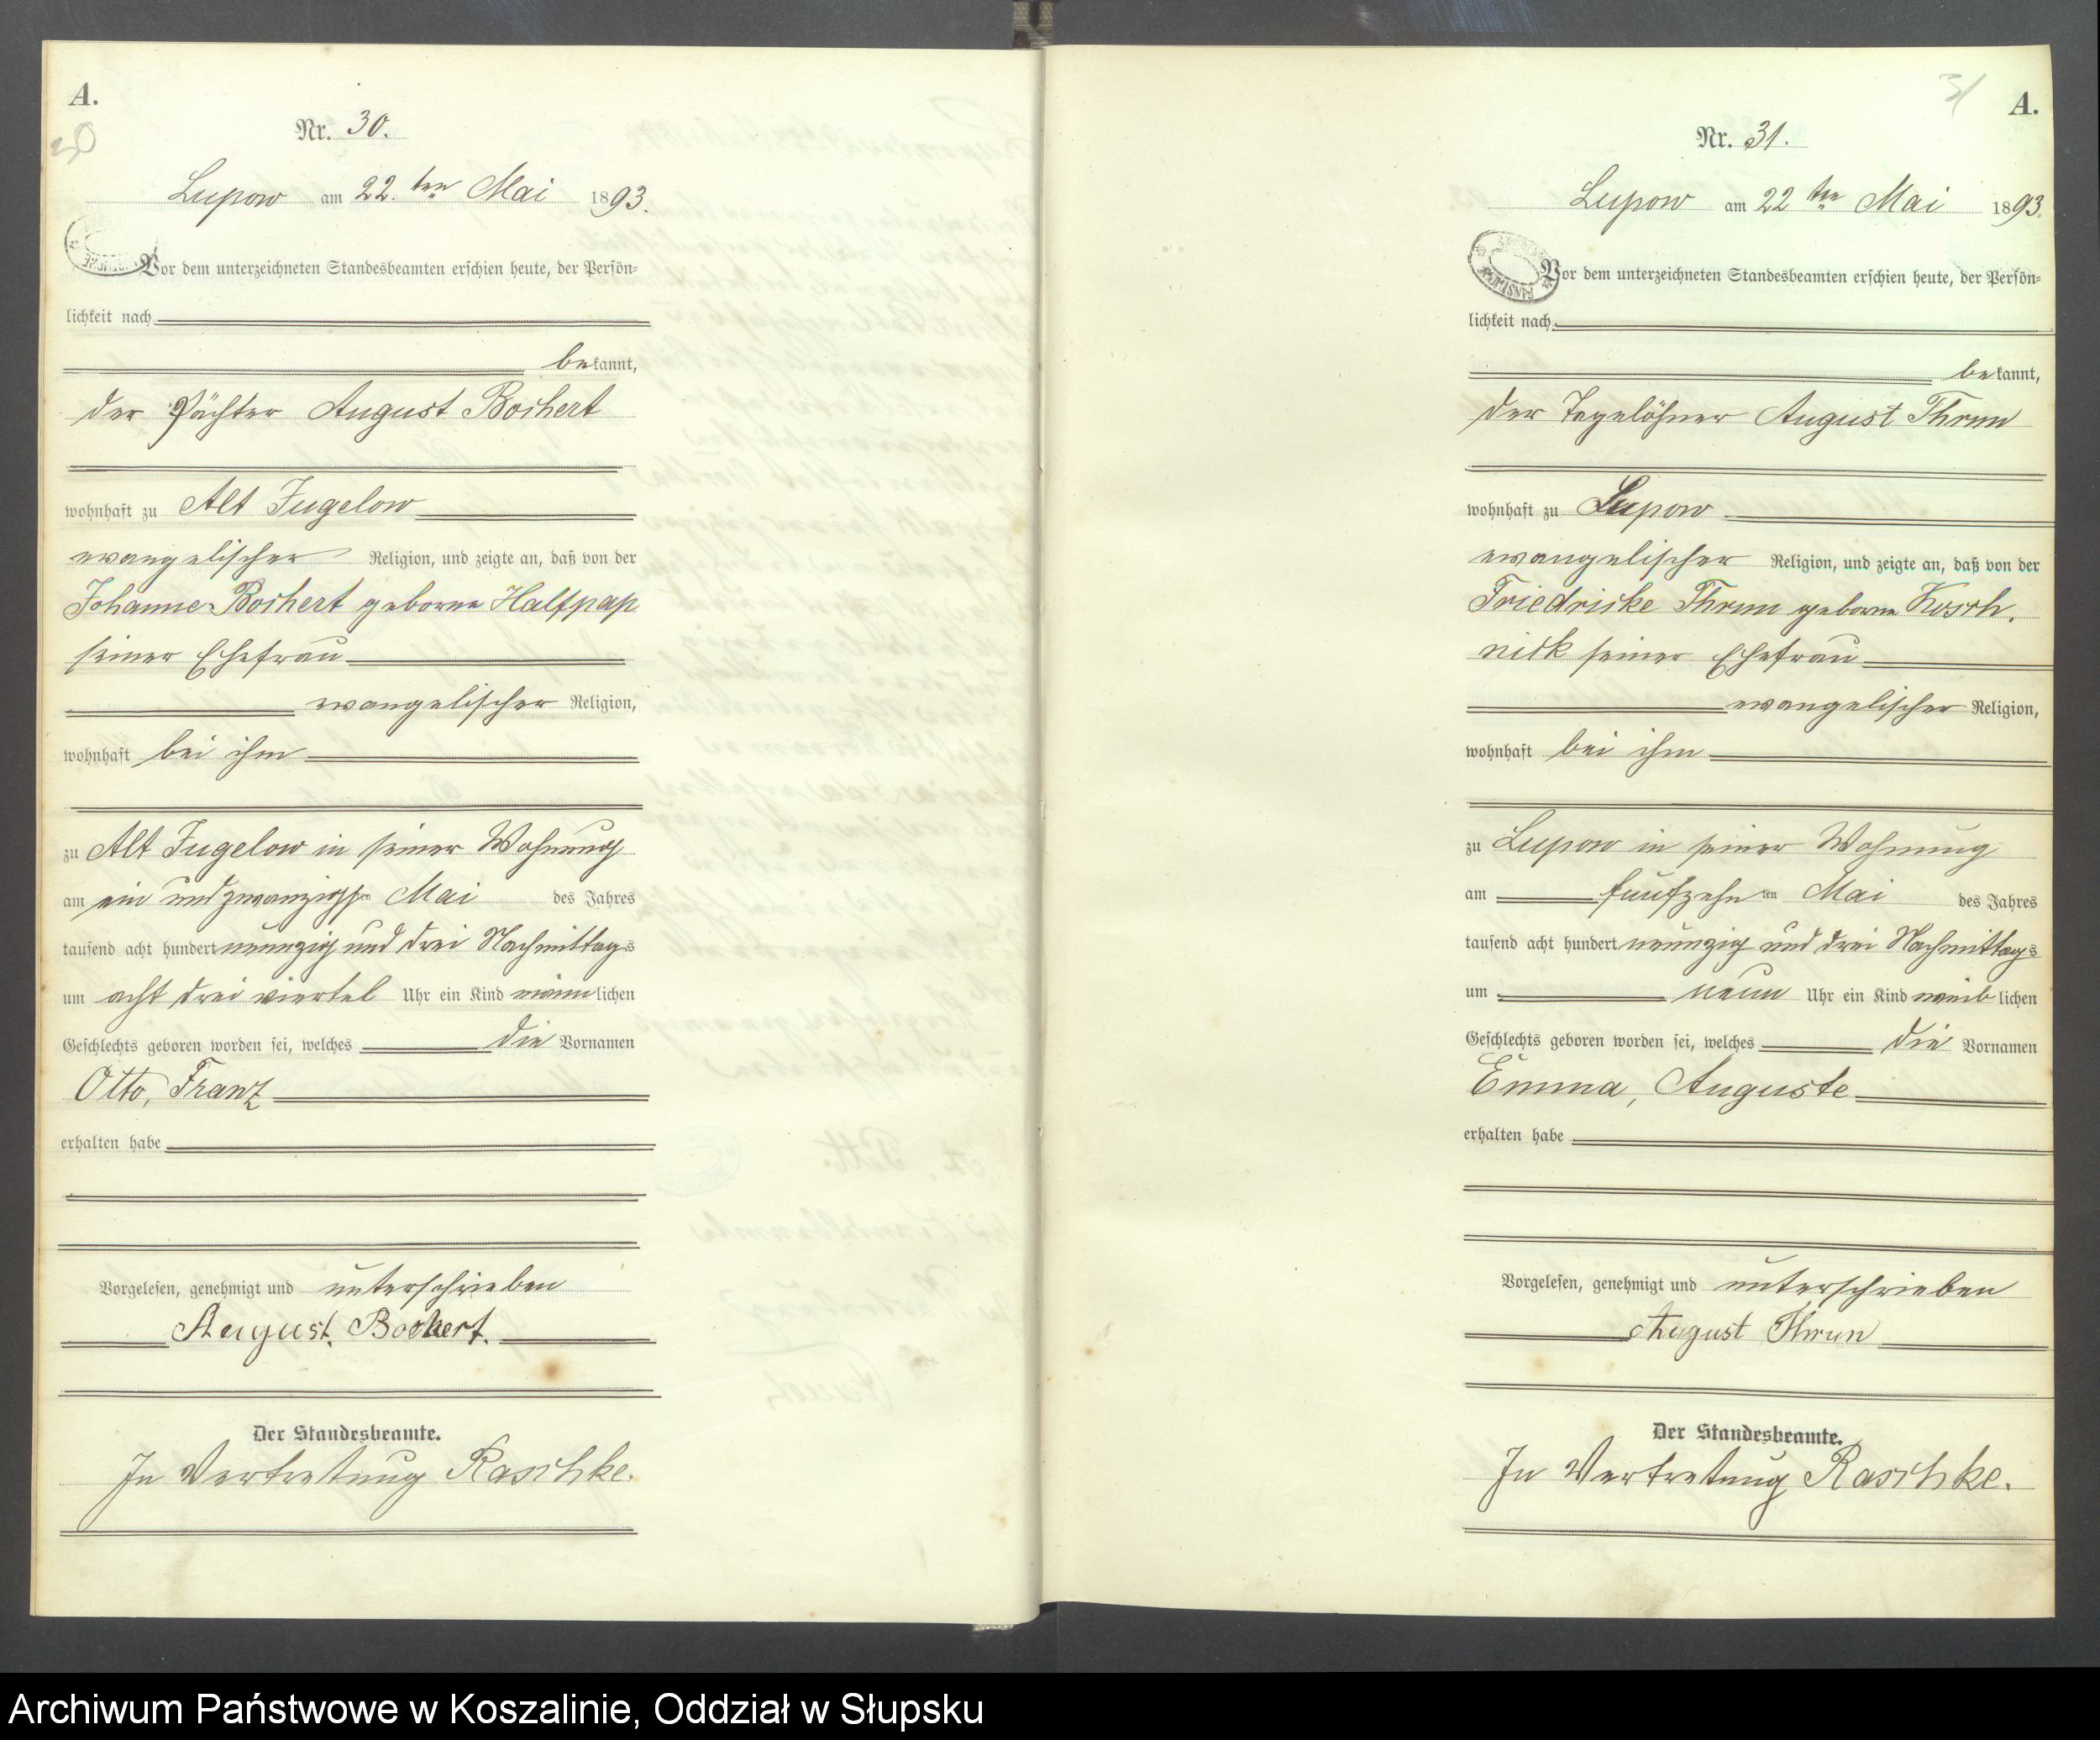 A.
30
Nr. 30.
Lupow am 22. ten Mai 1893.
Vor dem unterzeichneten Standesbeamten erschien heute, der Persön-
lichkeit nach
bekannt,
der Pächter August Bochert
wohnhaft zu Alt Jugelow
evangelischer Religion, und zeigte an, daß von der
Johanne Bochert geborne Halfpap
seiner Ehefrau
evangelischer Religion,
wohnhaft bei ihm
zu Alt Jugelow in seiner Wohnung
am ein und zwanzigsten Mai des Jahres
tausend acht hundert neunzig und drei Nachmittags
um acht drei viertel Uhr ein Kind männlichen
Geschlechts geboren worden sei, welches die Vornamen
Otto, Franz
erhalten habe
Vorgelesen, genehmigt und unterschrieben
August Bochert.
Der Standesbeamte.
In Vertretung Raschke.
31
A.
Nr. 31.
Lupow am 22 ten Mai 1893.
Vor dem unterzeichneten Standesbeamten erschien heute, der Persön-
lichkeit nach
bekannt,
der Tagelöhner August Thrun
wohnhaft zu Lupow
evangelischer Religion, und zeigte an, daß von der
Friedricke Thrun geborne Kosch,
nick seiner Ehefrau
evangelischer Religion,
wohnhaft bei ihm
zu Lupow in seiner Wohnung
am fünfzehnten Mai des Jahres
tausend acht hundert neunzig und drei Nachmittags
um neun Uhr ein Kind weiblichen
Geschlechts geboren worden sei, welches die Vornamen
Emma, Auguste
erhalten habe
Vorgelesen, genehmigt und unterschrieben
August Thrun
Der Standesbeamte.
In Vertretung Raschke.
Archiwum Państwowe w Koszalinie, Oddział w Słupsku